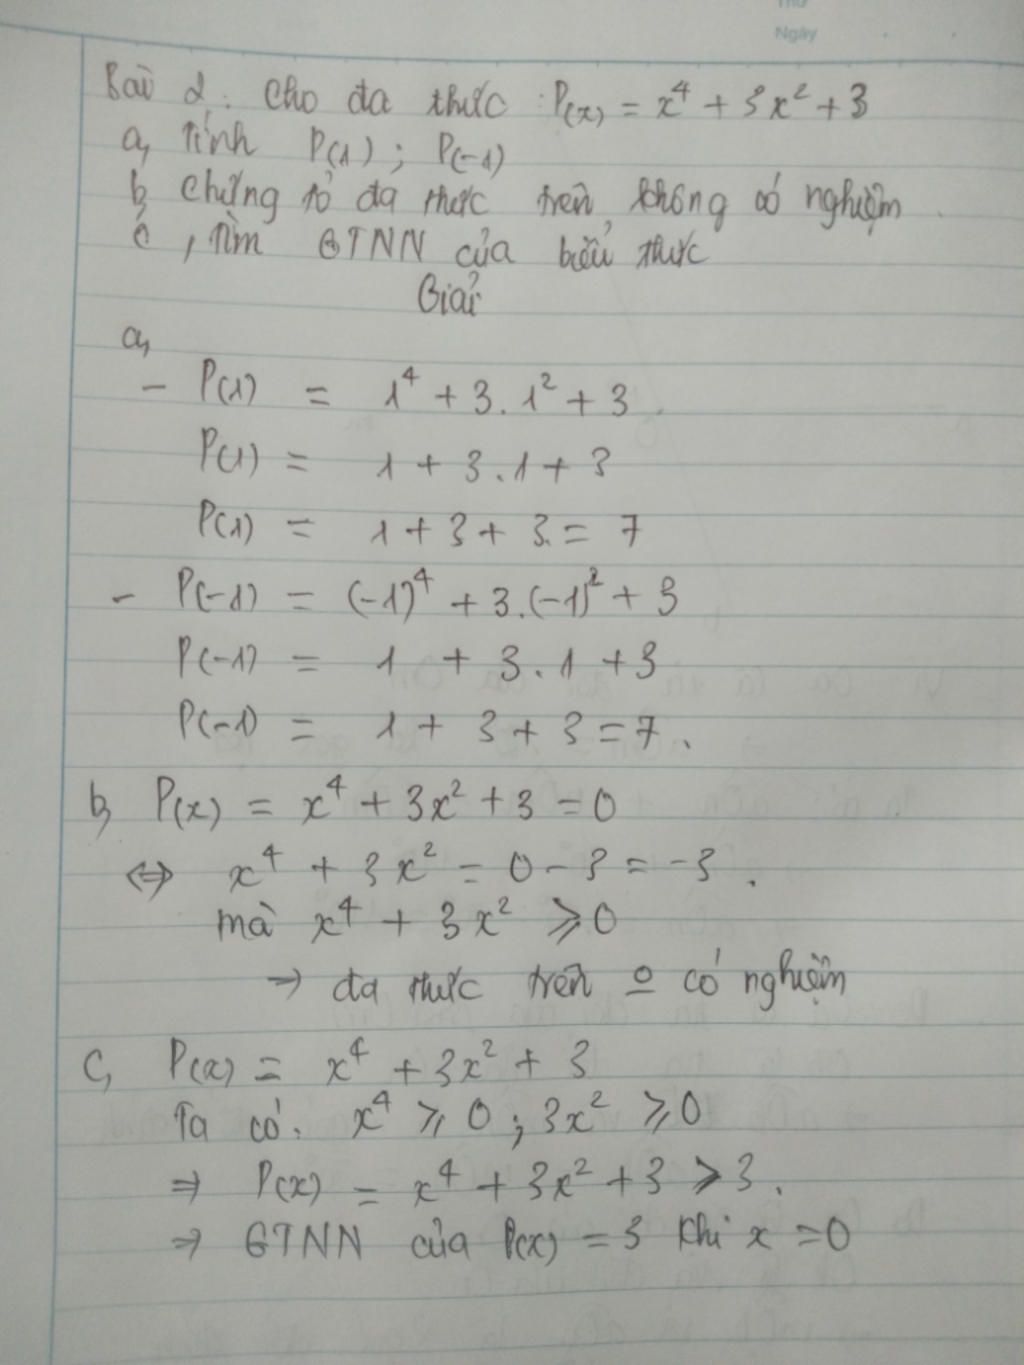 Thứ
Ngày
Bài 2: Cho đa thức : P(x) = x⁴ + 3x² + 3
a, Tính P(1) ; P(-1)
b, Chứng tỏ đa thức trên không có nghiệm.
c, Tìm GTNN của biểu thức
Giải
a,
- P(1) = 1⁴ + 3.1² + 3
P(1) = 1 + 3.1 + 3
P(1) = 1 + 3 + 3 = 7
- P(-1) = (-1)⁴ + 3.(-1)² + 3
P(-1) = 1 + 3.1 + 3
P(-1) = 1 + 3 + 3 = 7.
b, P(x) = x⁴ + 3x² + 3 = 0
⇔ x⁴ + 3x² = 0 - 3 = -3.
mà x⁴ + 3x² ⩾ 0
→ đa thức trên o̲ có nghiệm
c, P(x) = x⁴ + 3x² + 3
Ta có: x⁴ ⩾ 0 ; 3x² ⩾ 0
⇒ P(x) = x⁴ + 3x² + 3 ⩾ 3.
⇒ GTNN của P(x) = 3 khi x = 0